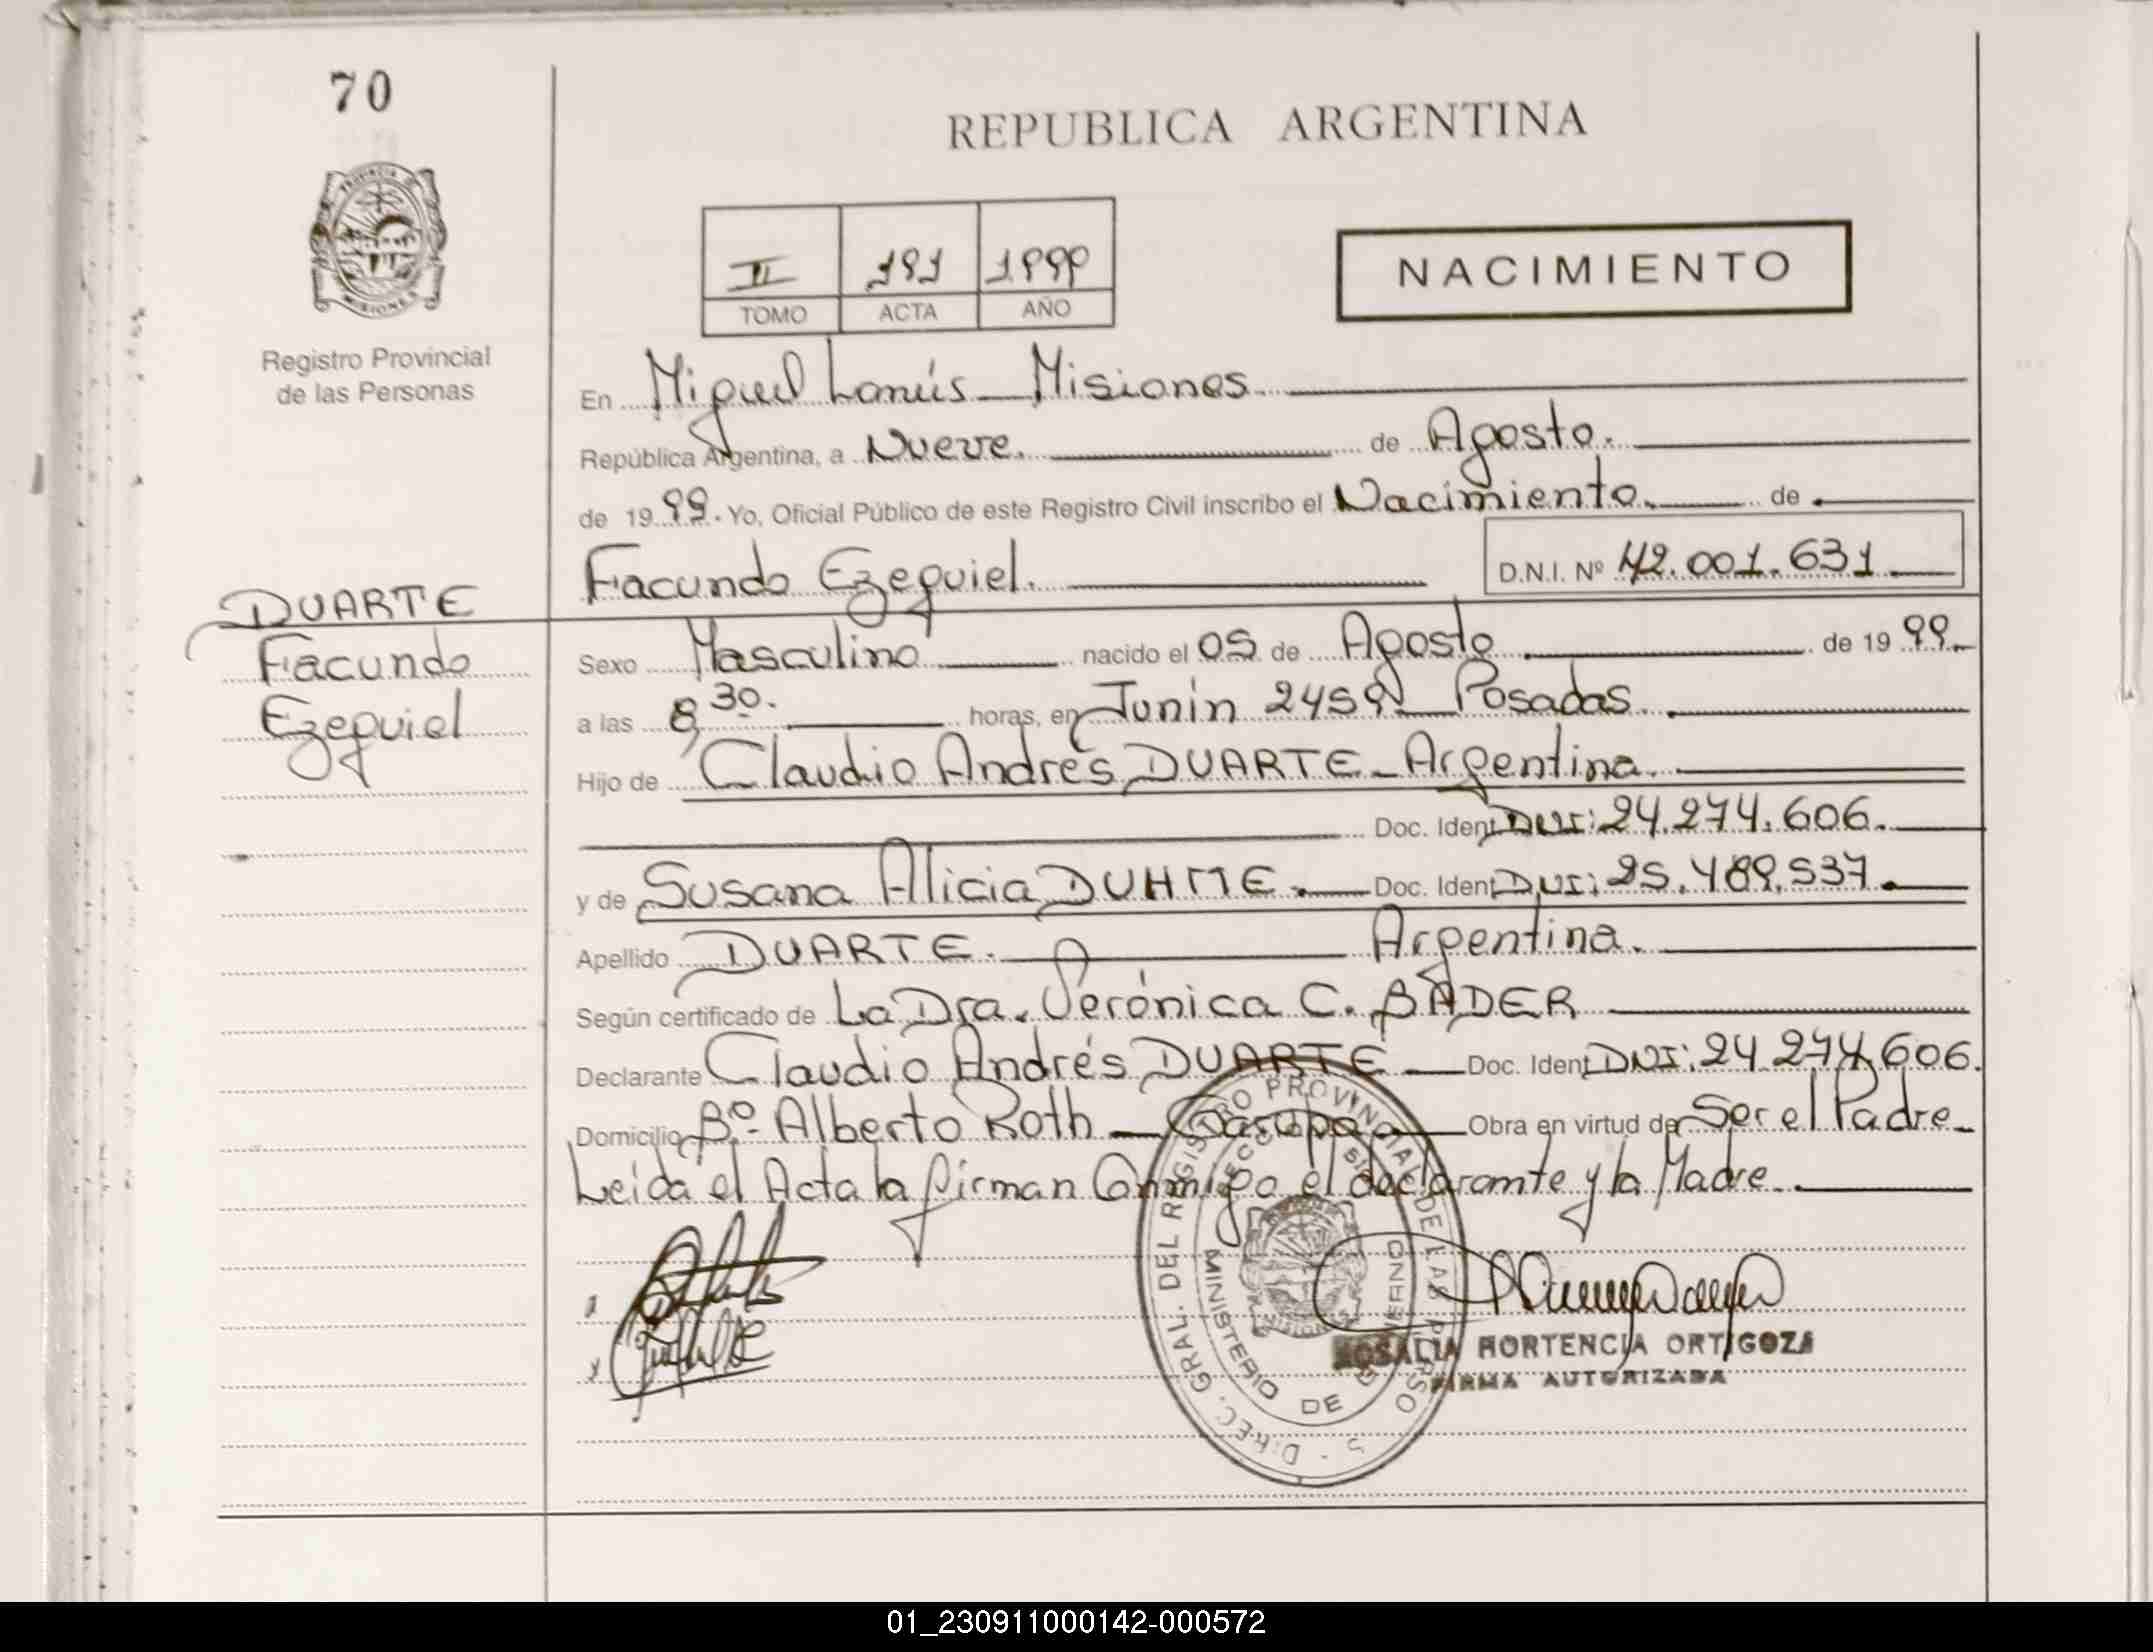 70
REPUBLICA ARGENTINA
PROVINCIA DE
MISIONES
Registro Provincial
de las Personas
II 191 1999
TOMO ACTA AÑO
NACIMIENTO
En Miguel Lanús _ Misiones
República Argentina, a Nueve. de Agosto.
de 1999. Yo, Oficial Público de este Registro Civil inscribo el Nacimiento. de
Facundo Ezequiel. D.N.I. Nº 42.001.631
DUARTE
Facundo
Ezequiel
Sexo Masculino nacido el 05 de Agosto de 1999
a las 8,30. horas, en Junín 2459 _ Posadas.
Hijo de Claudio Andrés DUARTE _ Argentina.
Doc. Ident. DNI: 24.274.606.
y de Susana Alicia DUHME. Doc. Ident. DNI: 25.489.537.
Apellido DUARTE. Argentina.
Según certificado de La Dra. Verónica C. BADER
Declarante Claudio Andrés DUARTE Doc. Ident. DNI: 24.274.606.
Domicilio Bº Alberto Roth _ Garupá. Obra en virtud de Ser el Padre _
Leída el Acta la firman Conmigo el declarante y la Madre.
DIREC. GRAL. DEL REGISTRO PROVINCIAL DE LAS PERSO S
MINISTERIO DE GOBIERNO
ROSALIA HORTENCIA ORTIGOZA
FIRMA AUTORIZADA
01_230911000142-000572